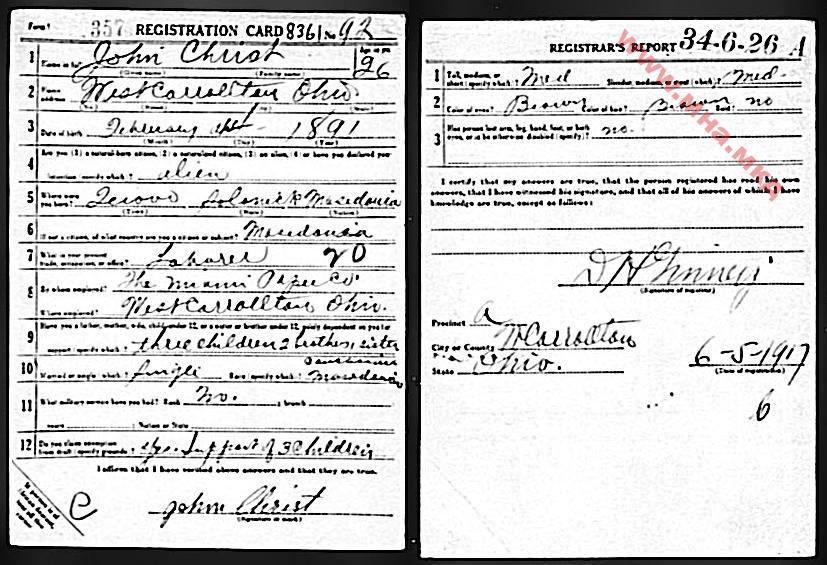 Form 1 357 REGISTRATION CARD 8361 No 92
1 Name in full John Christ Age in yrs 26
(Given name) (Family name)
2 Home address West Carrollton Ohio
(No.) (Street) (City) (State)
3 Date of birth February 1891
(Month) (Day) (Year)
4 Are you (1) a natural-born citizen, (2) a naturalized citizen, (3) an alien, (4) or have you declared your
intention (specify which)? alien
5 Where were you born? Macedonia
(Town) (State) (Nation)
6 If not a citizen, of what country are you a citizen or subject? Macedonia
7 What is your present trade, occupation, or office? Laborer 20
8 By whom employed? The Miami Paper Co.
Where employed? West Carrollton Ohio.
9 Have you a father, mother, wife, child under 12, or a sister or brother under 12, solely dependent on you for
support (specify which)? three children 2 brothers, sister
10 Married or single (which)? Single Race (specify which)? Caucasian Macedonia
11 What military service have you had? Rank No. ; branch
years ; Nation or State
12 Do you claim exemption from draft (specify grounds)? yes. Support of 3 Children
I affirm that I have verified above answers and that they are true.
C
John Christ
(Signature or mark)
REGISTRAR'S REPORT 34-6-26 A
1 Tall, medium, or short (specify which)? Med Slender, medium, or stout (which)? Med.
2 Color of eyes? Brown Color of hair? Brown Bald? no
3 Has person lost arm, leg, hand, foot, or both eyes, or is he otherwise disabled (specify)? no.
I certify that my answers are true, that the person registered has read his own
answers, that I have witnessed his signature, and that all of his answers of which I have
knowledge are true, except as follows:
(Signature of registrar)
Precinct A
City or County W Carrollton
State Ohio.
6-5-1917
(Date of registration)
6
www.MHa.MK